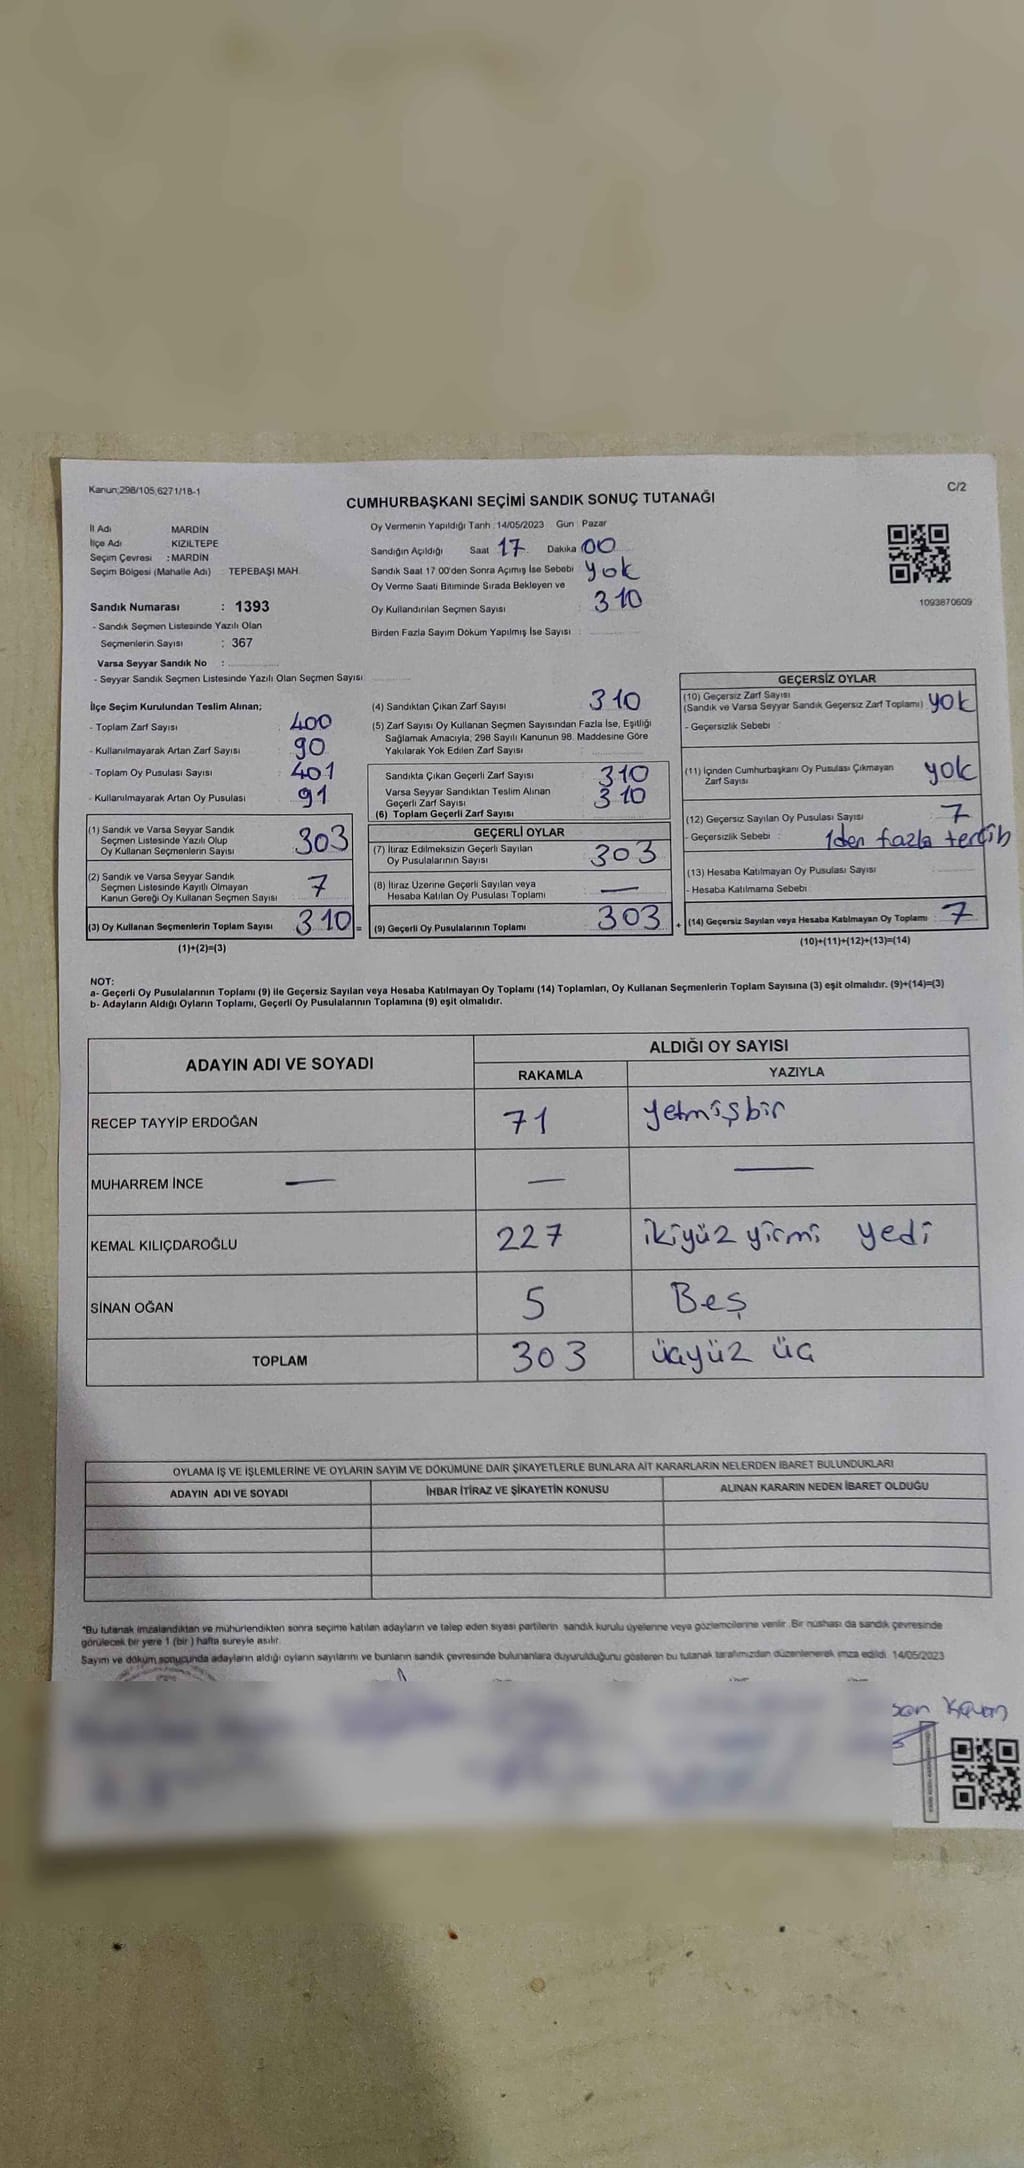 Kanun;298/105,6271/18-1
C/2
CUMHURBAŞKANI SEÇİMİ SANDIK SONUÇ TUTANAĞI
İl Adı MARDİN
İlçe Adı KIZILTEPE
Seçim Çevresi : MARDİN
Seçim Bölgesi (Mahalle Adı) : TEPEBAŞI MAH.
Sandık Numarası : 1393
- Sandık Seçmen Listesinde Yazılı Olan
Seçmenlerin Sayısı : 367
Varsa Seyyar Sandık No :
- Seyyar Sandık Seçmen Listesinde Yazılı Olan Seçmen Sayısı
Oy Vermenin Yapıldığı Tarih : 14/05/2023 Gün : Pazar
Sandığın Açıldığı Saat 17 Dakika 00
Sandık Saat 17.00'den Sonra Açımış İse Sebebi yok
Oy Verme Saati Bitiminde Sırada Bekleyen ve
Oy Kullandırılan Seçmen Sayısı 310
Birden Fazla Sayım Döküm Yapılmış İse Sayısı :
1093870609
İlçe Seçim Kurulundan Teslim Alınan;
- Toplam Zarf Sayısı 400
- Kullanılmayarak Artan Zarf Sayısı 90
- Toplam Oy Pusulası Sayısı 401
- Kullanılmayarak Artan Oy Pusulası 91
(1) Sandık ve Varsa Seyyar Sandık
Seçmen Listesinde Yazılı Olup
Oy Kullanan Seçmenlerin Sayısı 303
(2) Sandık ve Varsa Seyyar Sandık
Seçmen Listesinde Kayıtlı Olmayan
Kanun Gereği Oy Kullanan Seçmen Sayısı 7
(3) Oy Kullanan Seçmenlerin Toplam Sayısı 310 =
(1)+(2)=(3)
(4) Sandıktan Çıkan Zarf Sayısı 310
(5) Zarf Sayısı Oy Kullanan Seçmen Sayısından Fazla İse, Eşitliği
Sağlamak Amacıyla, 298 Sayılı Kanunun 98. Maddesine Göre
Yakılarak Yok Edilen Zarf Sayısı :
Sandıkta Çıkan Geçerli Zarf Sayısı 310
Varsa Seyyar Sandıktan Teslim Alınan
Geçerli Zarf Sayısı 310
(6) Toplam Geçerli Zarf Sayısı
GEÇERLİ OYLAR
(7) İtiraz Edilmeksizin Geçerli Sayılan
Oy Pusulalarının Sayısı 303
(8) İtiraz Üzerine Geçerli Sayılan veya
Hesaba Katılan Oy Pusulası Toplamı —
(9) Geçerli Oy Pusulalarının Toplamı 303 +
GEÇERSİZ OYLAR
(10) Geçersiz Zarf Sayısı
(Sandık ve Varsa Seyyar Sandık Geçersiz Zarf Toplamı) yok
- Geçersizlik Sebebi :
(11) İçinden Cumhurbaşkanı Oy Pusulası Çıkmayan
Zarf Sayısı yok
(12) Geçersiz Sayılan Oy Pusulası Sayısı 7
- Geçersizlik Sebebi : 1den fazla tercih
(13) Hesaba Katılmayan Oy Pusulası Sayısı
- Hesaba Katılmama Sebebi
(14) Geçersiz Sayılan veya Hesaba Katılmayan Oy Toplamı : 7
(10)+(11)+(12)+(13)=(14)
NOT:
a- Geçerli Oy Pusulalarının Toplamı (9) ile Geçersiz Sayılan veya Hesaba Katılmayan Oy Toplamı (14) Toplamları, Oy Kullanan Seçmenlerin Toplam Sayısına (3) eşit olmalıdır. (9)+(14)=(3)
b- Adayların Aldığı Oyların Toplamı, Geçerli Oy Pusulalarının Toplamına (9) eşit olmalıdır.
ADAYIN ADI VE SOYADI ALDIĞI OY SAYISI
RAKAMLA YAZIYLA
RECEP TAYYİP ERDOĞAN 71 yetmişbir
MUHARREM İNCE — — —
KEMAL KILIÇDAROĞLU 227 ikiyüz yirmi yedi
SİNAN OĞAN 5 Beş
TOPLAM 303 üçyüz üç
OYLAMA İŞ VE İŞLEMLERİNE VE OYLARIN SAYIM VE DÖKÜMÜNE DAİR ŞİKAYETLERLE BUNLARA AİT KARARLARIN NELERDEN İBARET BULUNDUKLARI
ADAYIN ADI VE SOYADI İHBAR İTİRAZ VE ŞİKAYETİN KONUSU ALINAN KARARIN NEDEN İBARET OLDUĞU
*Bu tutanak imzalandıktan ve mühürlendikten sonra seçime katılan adayların ve talep eden siyasi partilerin sandık kurulu üyelerine veya gözlemcilerine verilir. Bir nüshası da sandık çevresinde
görülecek bir yere 1 (bir) hafta süreyle asılır.
Sayım ve döküm sonucunda adayların aldığı oyların sayılarını ve bunların sandık çevresinde bulunanlara duyurulduğunu gösteren bu tutanak tarafımızdan düzenlenerek imza edildi. 14/05/2023